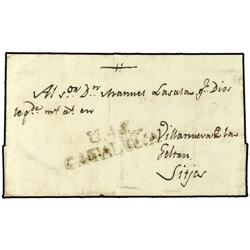 Al s.or Dn Manuel Casala q.e Dios
gde. ms. as. en
Villanueva & la
Geltru
Sitjes
CATALUÑA